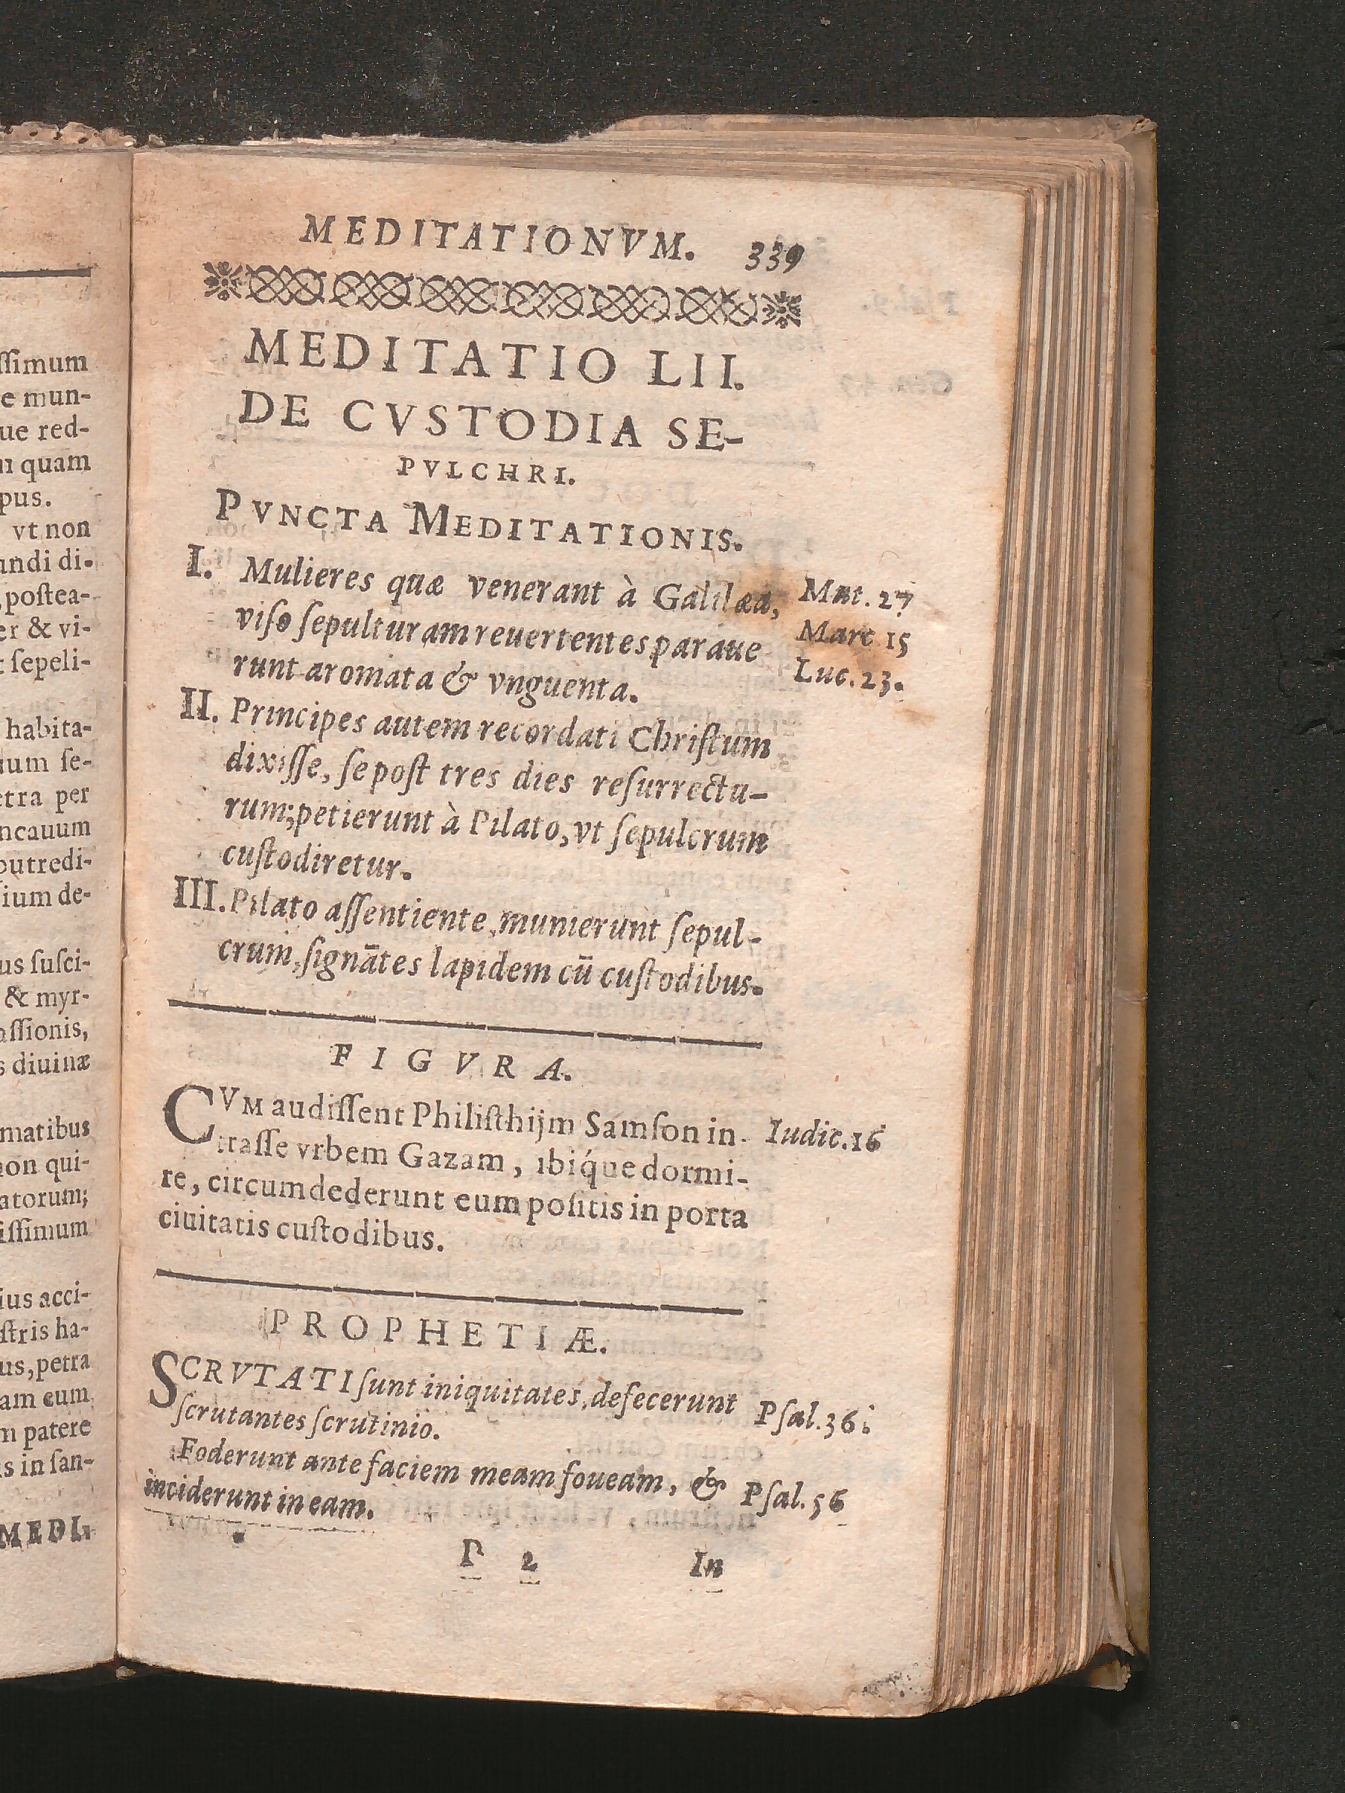 ſſimum
e mun-
ue red-
m quam
pus.
vt non
undi di-
, poſtea-
er & vi-
t ſepeli-
habita-
uum ſe-
etra per
ncauum
putredi-
ſium de-
us ſuſci-
& myr-
aſſionis,
s diuinæ
matibus
non qui-
atorum;
iſſimum
ius acci-
ſtris ha-
us, petra
am eum
m patere
is in ſan-
MEDI-
MEDITATIONVM. 339
MEDITATIO LII.
DE CVSTODIA SE-
PVLCHRI.
PVNCTA MEDITATIONIS.
I. Mulieres quæ venerant à Galilæa, Mat. 27
viſo ſepulturam reuertentes paraue Marc 15
runt aromata & vnguenta. Luc. 23.
II. Principes autem recordati Chriſtum
dixiſſe, ſe poſt tres dies reſurrectu-
rum; petierunt à Pilato, vt ſepulcrum
cuſtodiretur.
III. Pilato aſſentiente, munierunt ſepul-
crum, ſignātes lapidem cū cuſtodibus.
FIGVRA.
CVM audiſſent Philiſthijm Samſon in- Iudic. 16
traſſe vrbem Gazam, ibiq́ue dormi-
re, circumdederunt eum poſitis in porta
ciuitatis cuſtodibus.
PROPHETIÆ.
SCRVTATI ſunt iniquitates, defecerunt
ſcrutantes ſcrutinio. Pſal. 36.
Foderunt ante faciem meam foueam, & Pſal. 56
inciderunt in eam.
P 2 In